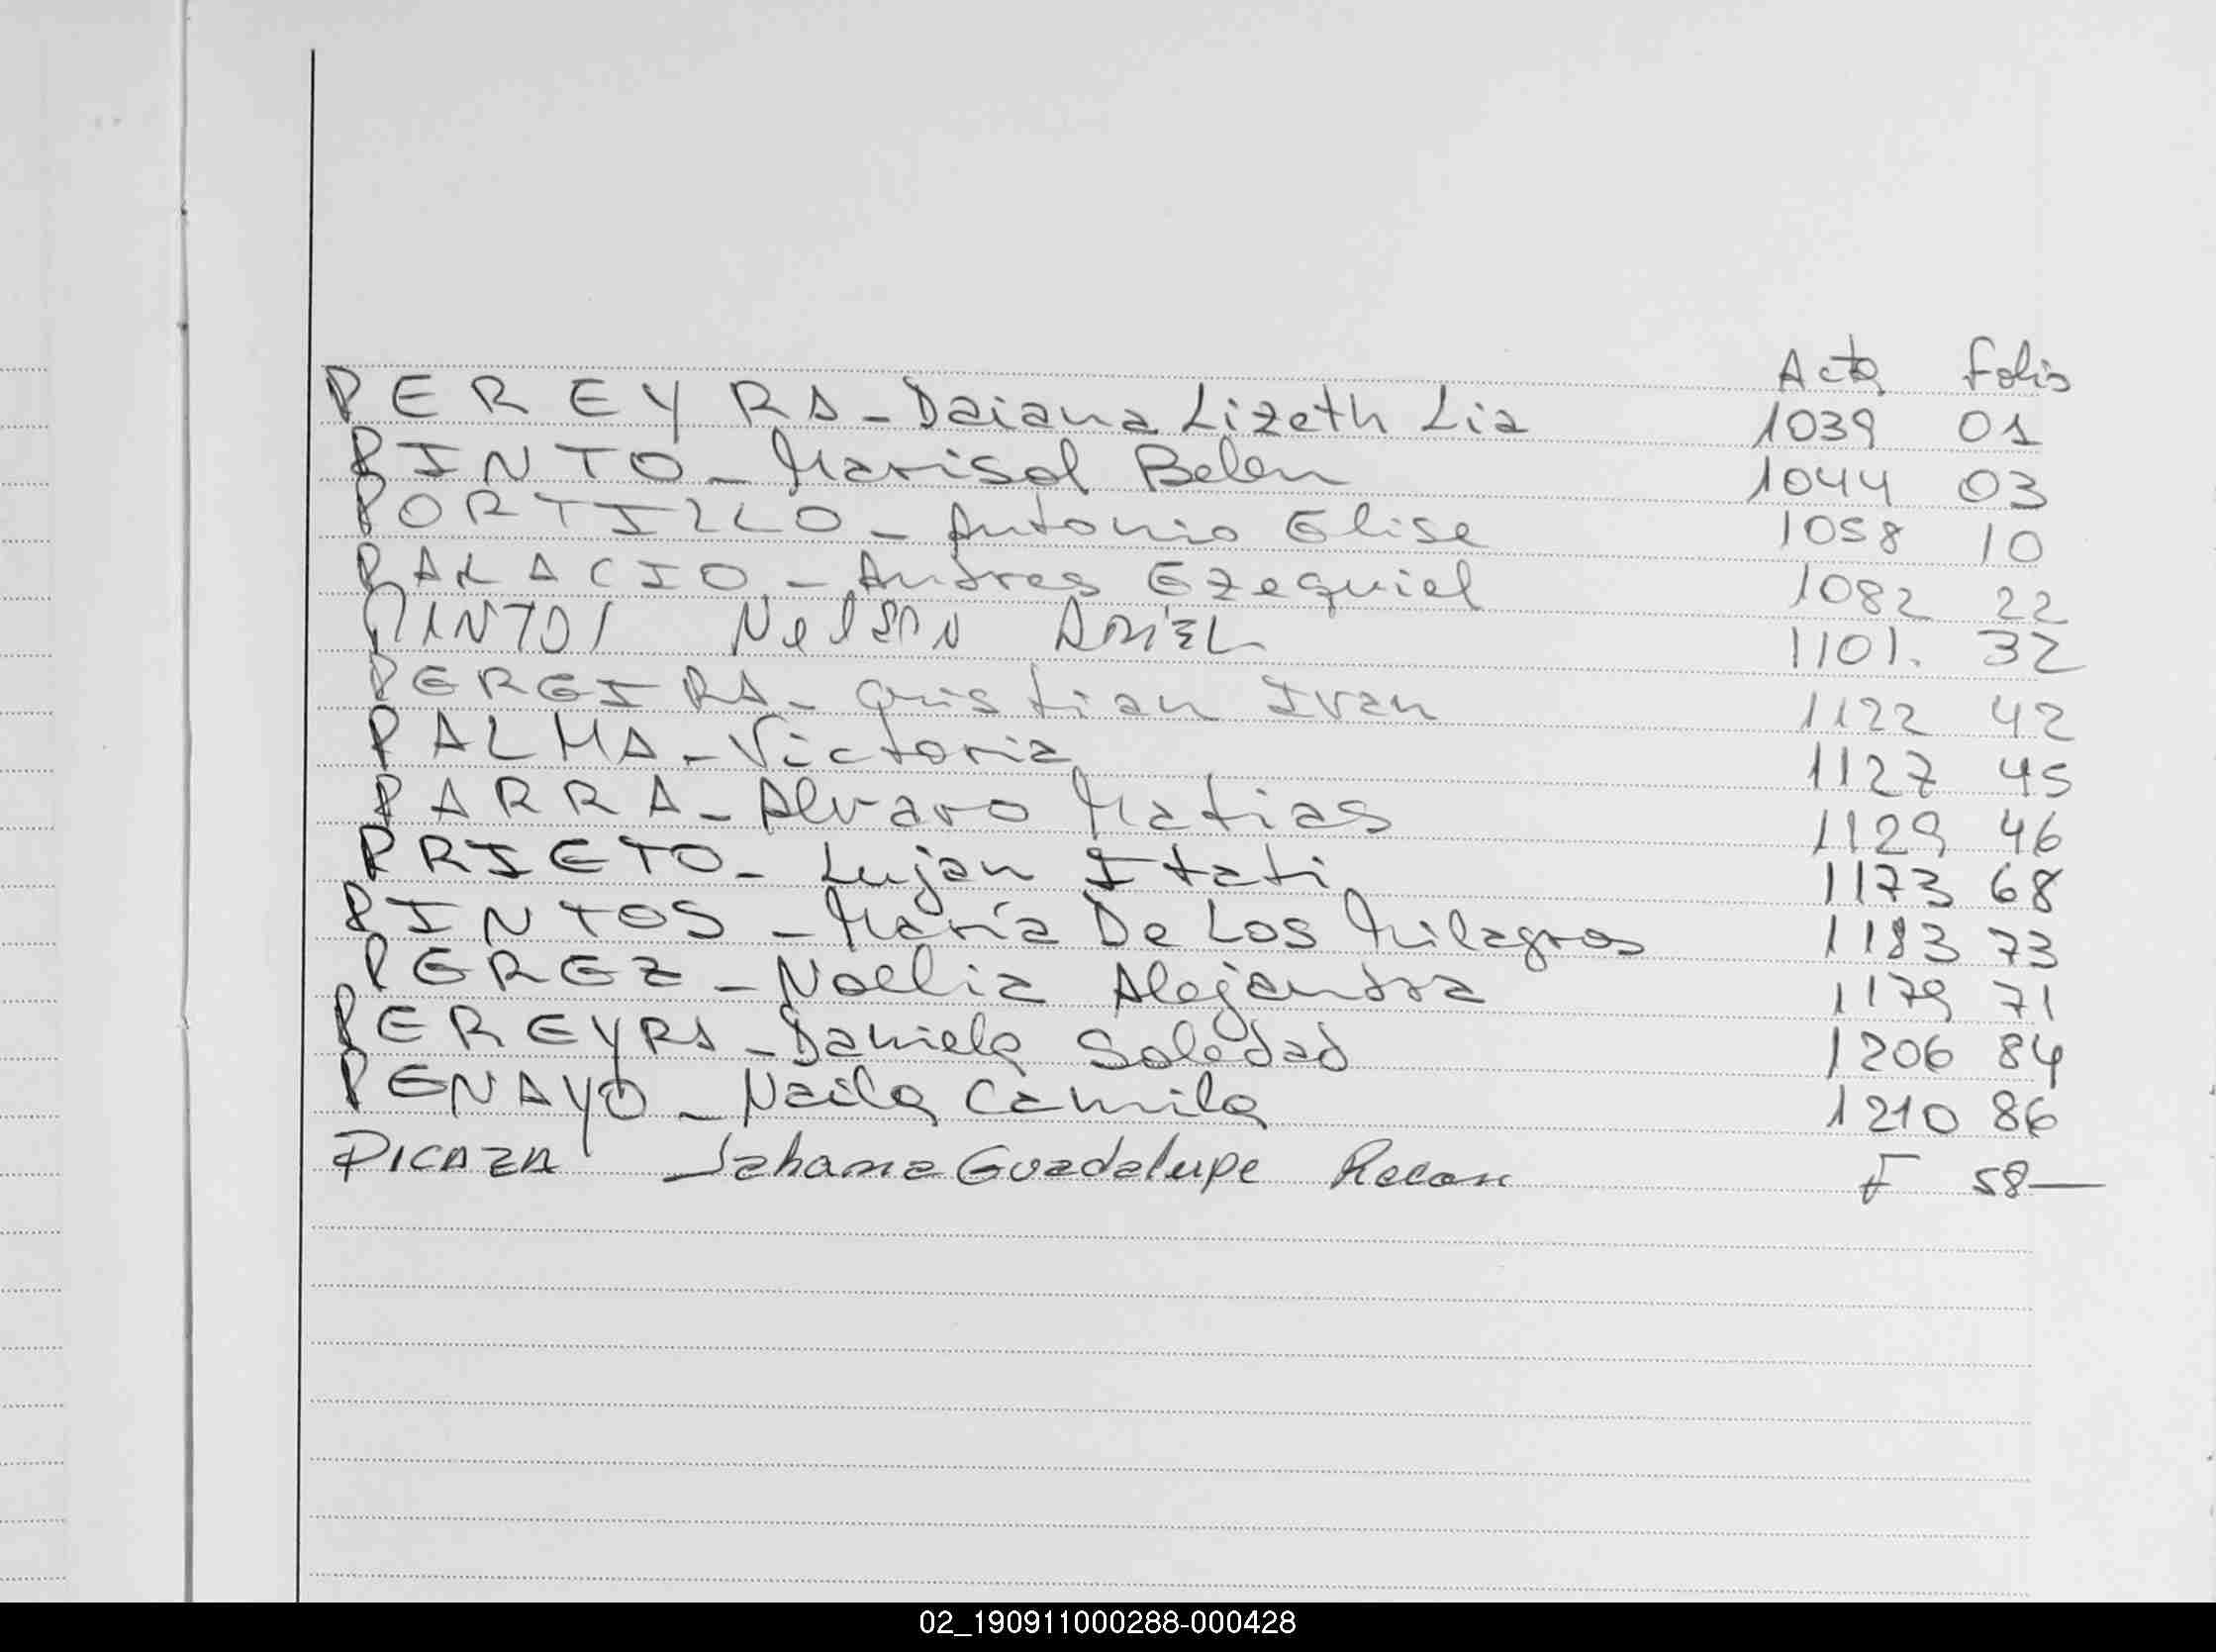 Acta Folio
PEREYRA - Daiana Lizeth Lia 1039 01
PINTO - Marisol Belen 1044 03
PORTILLO - Antonio Elise 1058 10
PALACIO - Andres Ezequiel 1082 22
PINTOS Nelson ARIEL 1101. 32
PEREIRA - Cristian Ivan 1122 42
PALMA - Victoria 1127 45
PARRA - Alvaro Matias 1129 46
PRIETO - Lujan Itati 1173 68
PINTOS - María De Los Milagros 1183 73
PEREZ - Noelia Alejandra 1179 71
PEREYRA - Daniela Soledad 1206 84
PENAYO - Naila Camila 1210 86
PICAZA Jahana Guadalupe Recon F 58—
02_190911000288-000428